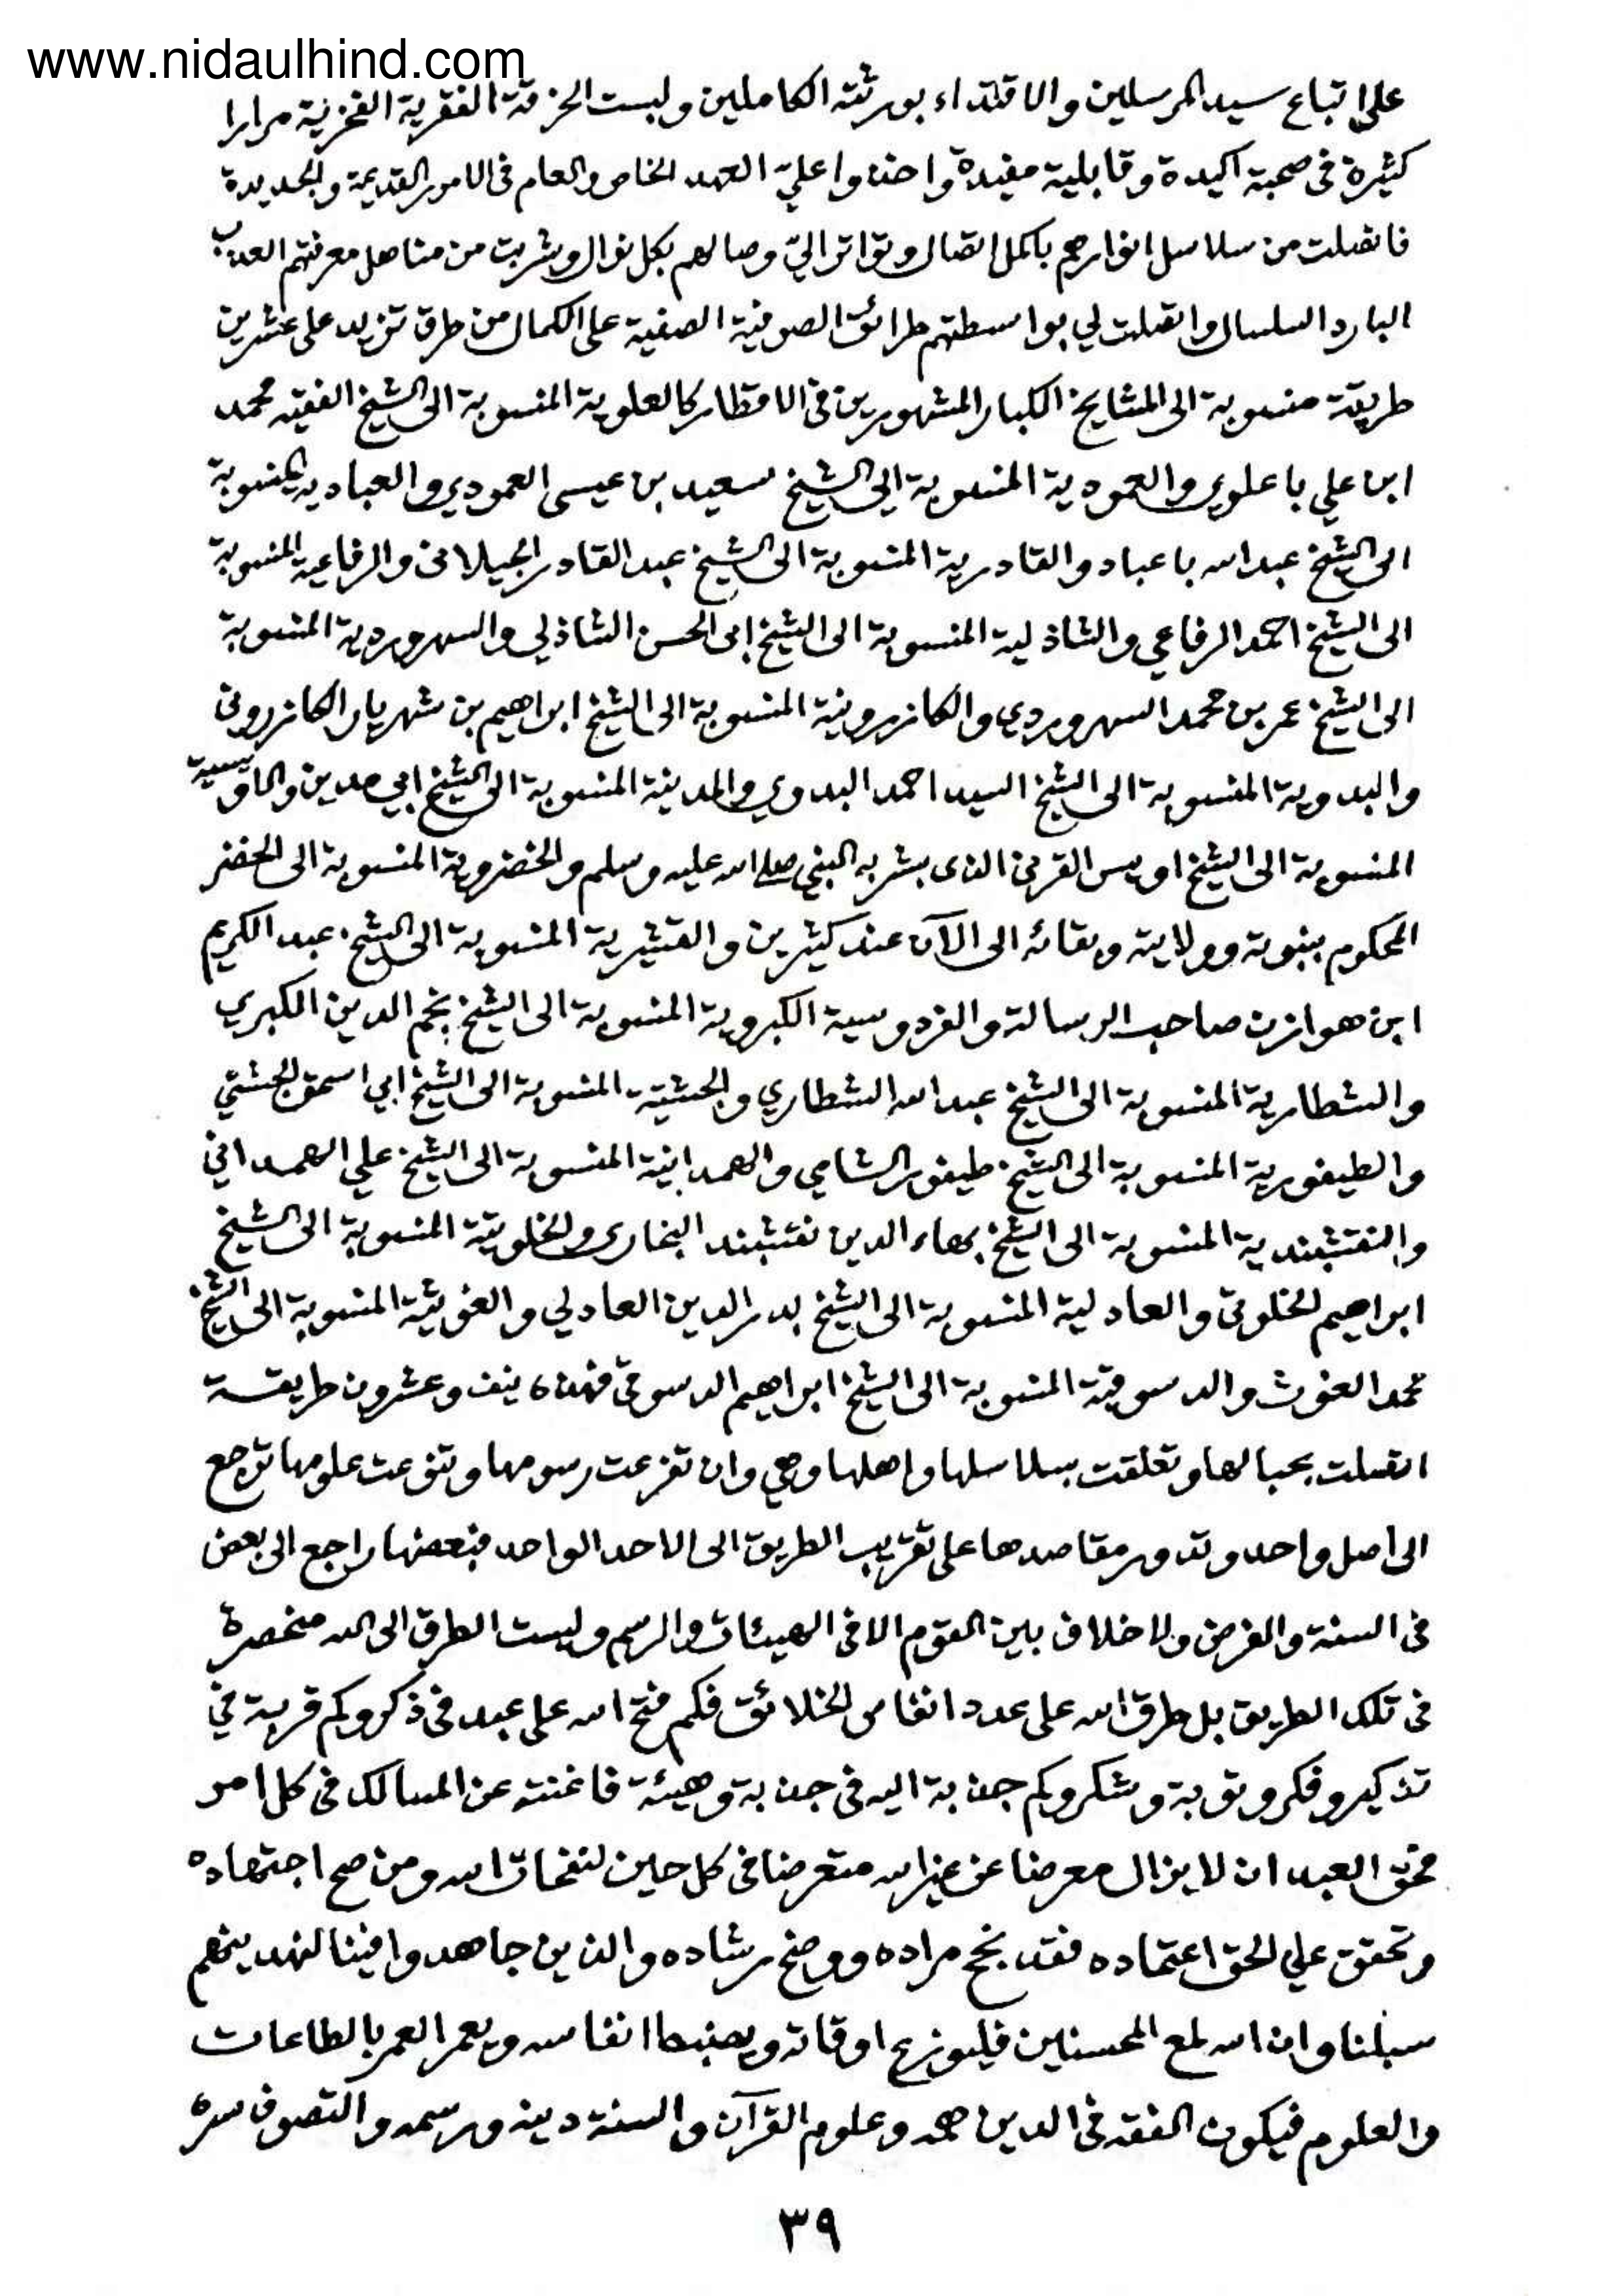 www.nidaulhind.com
على اتباع سيد المرسلين والاقتداء بورثته الكاملين ولبست الخرقة الفقرية الفخرية مرارا
كثيرة فى صحبة اكيدة وقابلية مفيدة واخذوا عليّ العهد الخاص والعام فى الامور القديمة والجديدة
فاتصلت من سلاسل انوارهم باكمل اتصال وتواتر اليّ وصالهم بكل نوال وشربت من مناهل معرفتهم العذب
البارد السلسال واتصلت لي بواسطتهم طرائق الصوفية الصفية على الكمال من طرق تزيد على عشرين
طريقة منسوبة الى المشايخ الكبار المشهورين فى الاقطار كالعلوية المنسوبة الى الشيخ الفقيه محمد
ابن علي باعلوي والعمودية المنسوبة الى الشيخ سعيد بن عيسى العمودي والعبادية المنسوبة
الى الشيخ عبد الله باعباد والقادرية المنسوبة الى الشيخ عبد القادر الجيلانى والرفاعية المنسوبة
الى الشيخ احمد الرفاعي والشاذلية المنسوبة الى الشيخ ابى الحسن الشاذلي والسهروردية المنسوبة
الى الشيخ عمر بن محمد السهروردي والكازرونية المنسوبة الى الشيخ ابراهيم بن شهريار الكازرونى
والبدوية المنسوبة الى الشيخ السيد احمد البدوي والمدينية المنسوبة الى الشيخ ابي مدين والاويسية
المنسوبة الى الشيخ اويس القرنى الذى بشر به النبي صلى الله عليه وسلم والخضروية المنسوبة الى الخضر
المحكوم بنبوته وولايته وبقائه الى الآن عند كثيرين والقشيرية المنسوبة الى الشيخ عبد الكريم
ابن هوازن صاحب الرسالة والفردوسية الكبروية المنسوبة الى الشيخ نجم الدين الكبري
والشطارية المنسوبة الى الشيخ عبد الله الشطاري والجشتية المنسوبة الى الشيخ ابي اسحق الجشتي
والطيفورية المنسوبة الى الشيخ طيفور الشامي والهمدانية المنسوبة الى الشيخ علي الهمدانى
والنقشبندية المنسوبة الى الشيخ بهاء الدين نقشبند البخارى والخلوتية المنسوبة الى الشيخ
ابراهيم الخلوتى والعادلية المنسوبة الى الشيخ بدر الدين العادلي والغوثية المنسوبة الى الشيخ
محمد الغوث والدسوقية المنسوبة الى الشيخ ابراهيم الدسوقى فهذه نيف وعشرون طريقة
اتصلت بحبالها وتعلقت بسلاسلها واهلها وهي وان تفرعت رسومها وتنوعت علومها ترجع
الى اصل واحد وتدور مقاصدها على تقريب الطريق الى الاحد الواحد فبعضها راجع الى بعض
فى السنة والفرض ولا خلاف بين القوم الا فى الهيئات والرسم وليست الطرق الى الله منحصرة
فى تلك الطريق بل طرق الله على عدد انفاس الخلائق فكم فتح الله على عبد فى ذكر وكم قربة في
تذكير وفكر وتوبة وشكر وكم جذبة اليه فى جذبة وهيئة فاغنته عن المسالك فى كل امر
فحق العبد ان لا يزال معرضا عن غير الله متعرضا فى كل حين لنفحات الله ومن صح اجتهاده
وتحقق علي الحق اعتماده فقد نجح مراده ووضح رشاده والذين جاهدوا فينا لنهدينهم
سبلنا وان الله لمع المحسنين فليوزع اوقاته ويضبط انفاسه ويعمر العمر بالطاعات
والعلوم فيكون الفقه فى الدين همه وعلوم القرآن والسنة دينه ورسمه والتصوف سره
٣٩